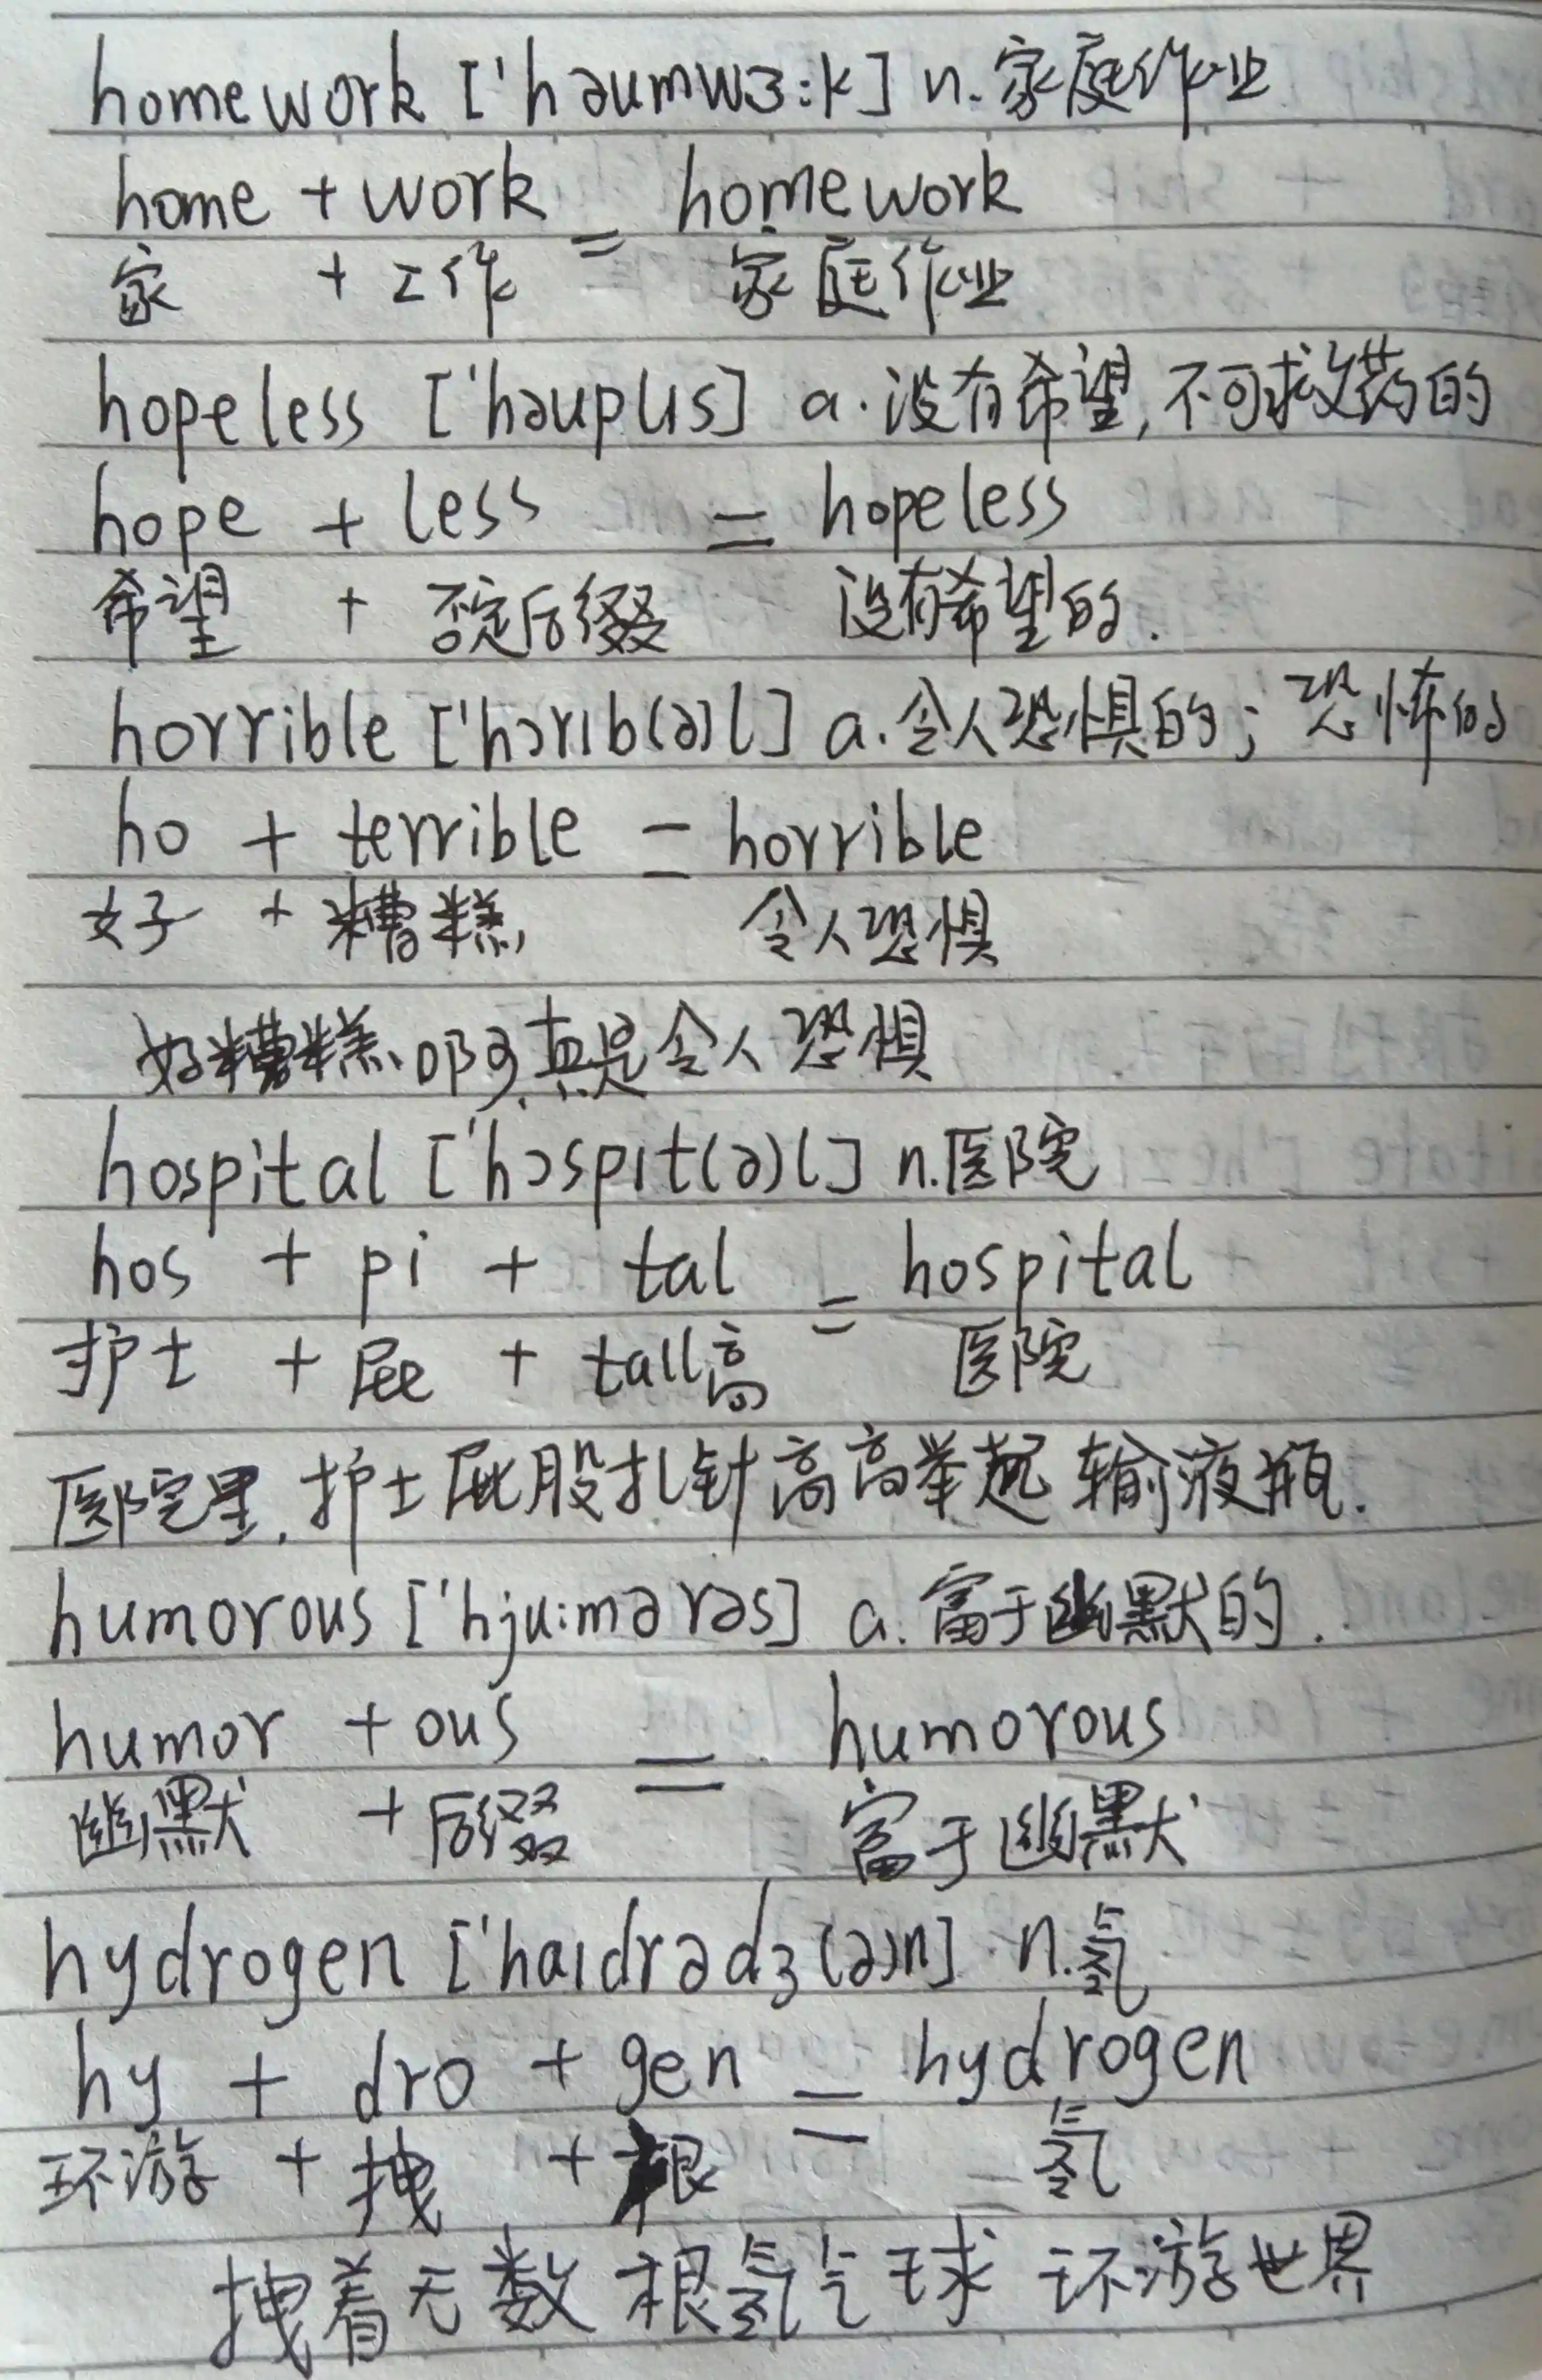 homework ['həumwɜ:k] n.家庭作业
home + work = homework
家 + 工作 = 家庭作业
hopeless ['həuplɪs] a.没有希望,不可救药的
hope + less = hopeless
希望 + 否定后缀 没有希望的.
horrible ['hɔrɪb(ə)l] a.令人恐惧的;恐怖的
ho + terrible = horrible
好 + 糟糕 令人恐惧
好糟糕啊,真是令人恐惧
hospital ['hɔspɪt(ə)l] n.医院
hos + pi + tal = hospital
护士 + 屁 + tall高 医院
医院里,护士屁股扎针高高举起输液瓶.
humorous ['hju:mərəs] a.富于幽默的.
humor + ous = humorous
幽默 + 后缀 富于幽默
hydrogen ['haɪdrədʒ(ə)n] n.氢
hy + dro + gen = hydrogen
环游 + 拽 + 根 氢
拽着无数根氢气球环游世界